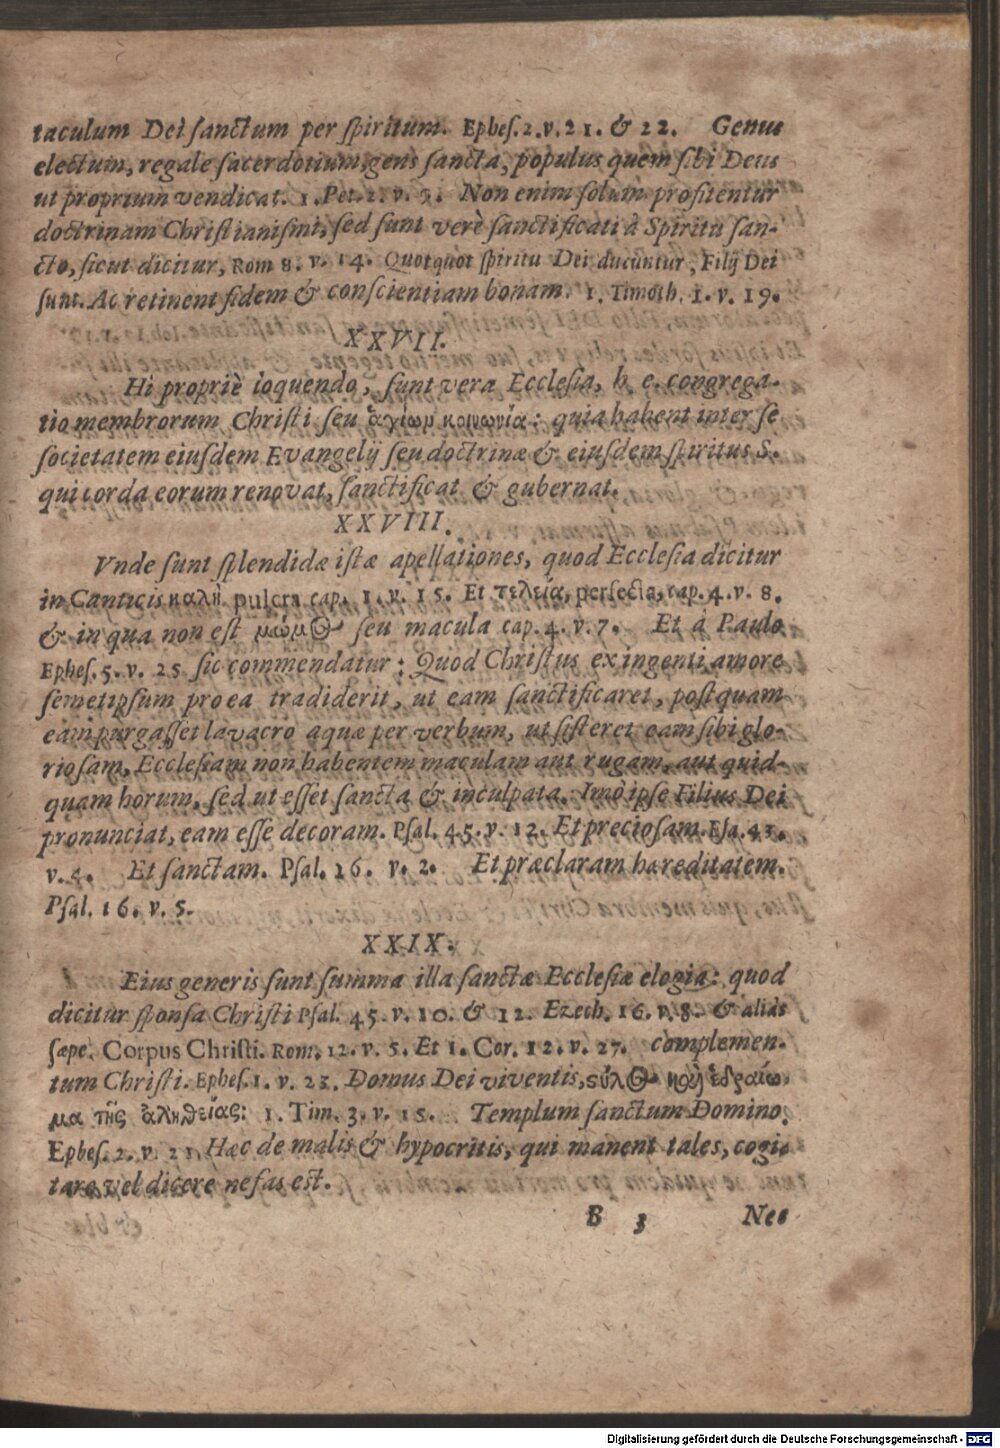 taculum Dei ſanctum per ſpiritum. Epheſ. 2. v. 21. & 22. Genus
electum, regale ſacerdotium, gens ſancta, populus quem ſibi Deus
ut proprium vendicat. 1. Pet. 2. v. 9. Non enim ſolùm profitentur
doctrinam Chriſtianiſmi, ſed ſunt verè ſanctificati à Spiritu ſan-
cto, ſicut dicitur, Rom 8. v. 14. Quotquot ſpiritu Dei ducuntur, Filij Dei
ſunt. Ac retinent fidem & conſcientiam bonam. 1. Timoth. 1. v. 19.
XXVII.
Hi propriè loquendo, ſunt vera Eccleſia, h. e. congrega-
tio membrorum Chriſti ſeu ἁγίων κοινωνία: quia habent inter ſe
ſocietatem eiuſdem Evangelij ſeu doctrinæ & eiuſdem ſpiritus S.
qui corda eorum renovat, ſanctificat & gubernat.
XXVIII.
Vnde ſunt ſplendidæ iſtæ apellationes, quod Eccleſia dicitur
in Canticis καλὴ pulcra cap. 1. v. 15. Et τελεία, perfecta, cap. 4. v. 8.
& in qua non eſt μῶμος ſeu macula cap. 4. v. 7. Et à Paulo
Epheſ. 5. v. 25 ſic commendatur: Quod Chriſtus ex ingenti amore
ſemetipſum pro ea tradiderit, ut eam ſanctificaret, poſtquam
eam purgaſſet lavacro aquæ per verbum, ut ſiſteret eam ſibi glo-
rioſam, Eccleſiam non habentem maculam aut rugam, aut quid-
quam horum, ſed ut eſſet ſancta & inculpata. Imò ipſe Filius Dei
pronunciat, eam eſſe decoram. Pſal. 45. v. 12. Et precioſam. Eſa. 43.
v. 4. Et ſanctam. Pſal. 16. v. 2. Et præclaram hæreditatem.
Pſal. 16. v. 5.
XXIX.
Eius generis ſunt ſumma illa ſanctæ Eccleſiæ elogia: quod
dicitur ſponſa Chriſti Pſal. 45. v. 10. & 12. Ezech. 16. v. 8. & aliàs
ſæpe. Corpus Chriſti. Rom. 12. v. 5. Et 1. Cor. 12. v. 27. complemen-
tum Chriſti. Epheſ. 1. v. 23. Domus Dei viventis, ϛύλος καὶ ἑδραίω-
μα τῆς ἀληθείας: 1. Tim. 3. v. 15. Templum ſanctum Domino.
Epheſ. 2. v. 21. Hæc de malis & hypocritis, qui manent tales, cogi-
tare vel dicere nefas eſt.
B 3 Nec
Digitalisierung gefördert durch die Deutsche Forschungsgemeinschaft - DFG